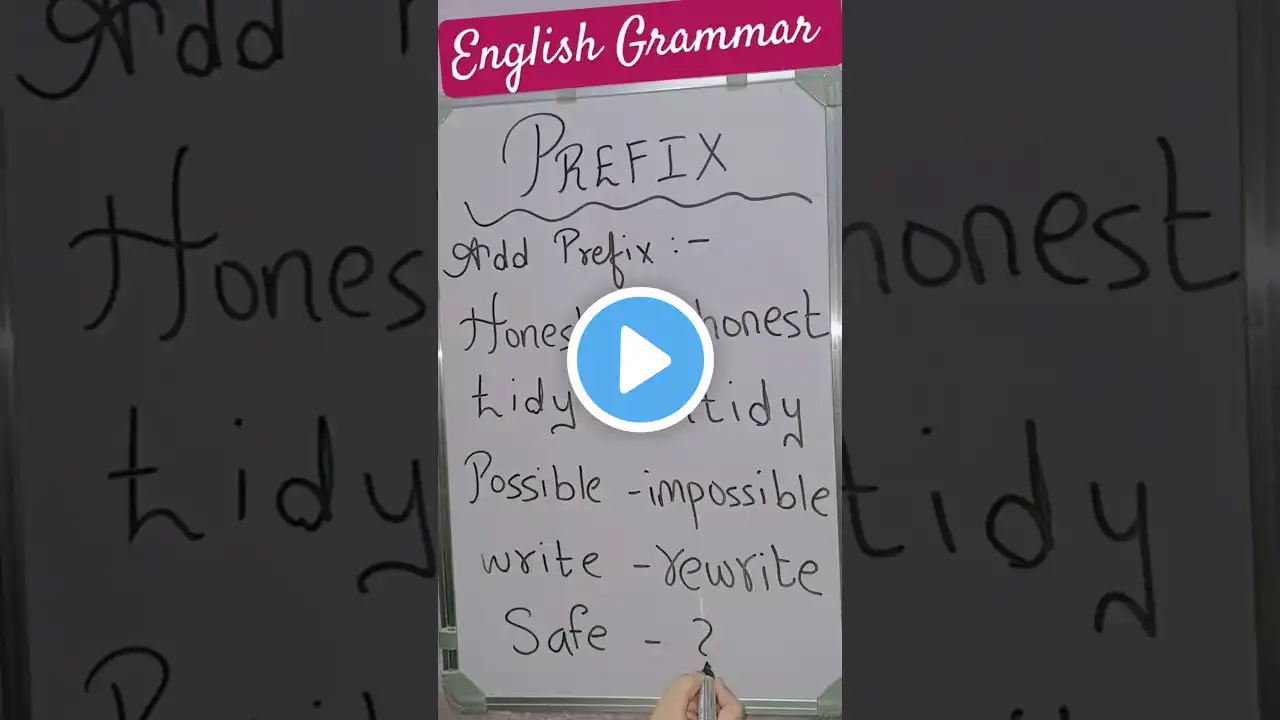 English Grammar
PREFIX
Add Prefix :-
Honest honest
tidy tidy
Possible - impossible
write - rewrite
Safe - ?